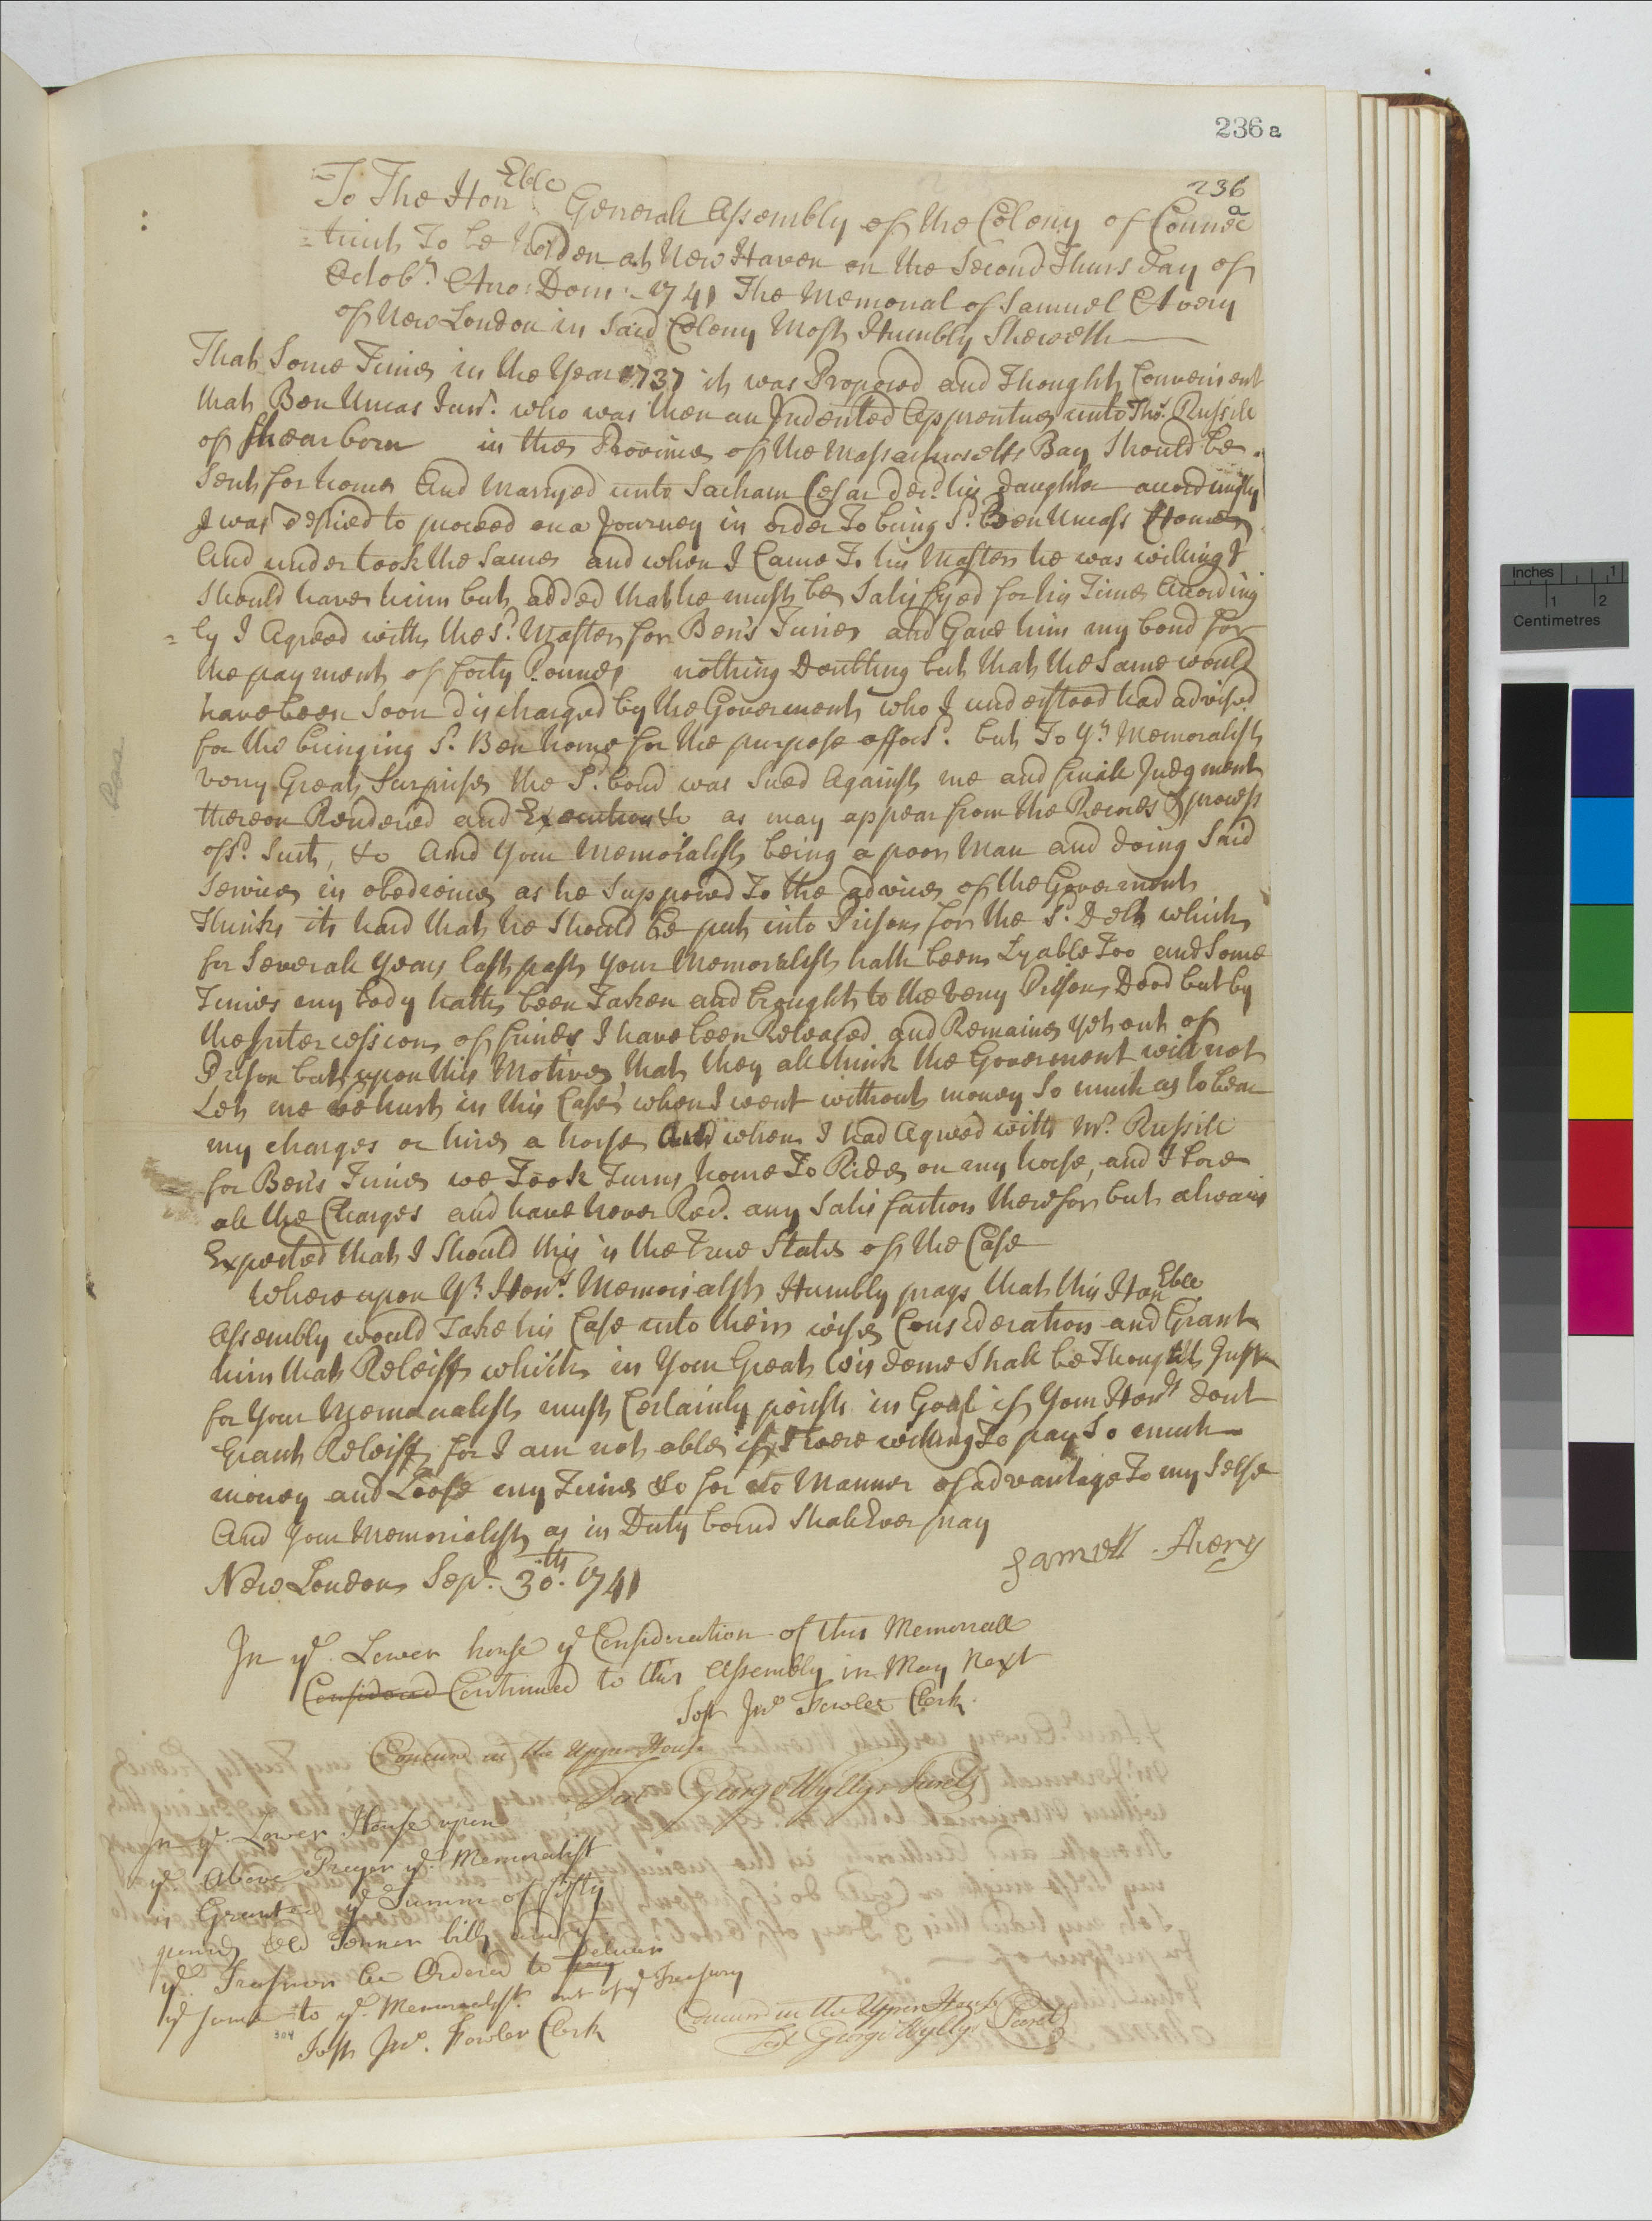 236 a
236
a
To The Hon Eble General Assembly of the Colony of Connec
=ticut To be holden at New Haven on the Second Thursday of
Octobr. Ano: Dom: 1741 The Memorial of Samuel Avery
of New London in Said Colony Most Humbly Sheweth
That Some Time in the Year 1737 it was Proposed and Thought Convenient
that Ben Uncas Junr. who was then an Indented Apprentice unto Thos. Russill
of Shearborn in the Province of the Massachusetts Bay Should be
Sent for home And Marryed unto Sacham Cesar decd. his daughter accordingly
I was desired to proceed on a Journey in order To bring sd. Ben Uncass Home
And undertook the Same and when I Came To his Master he was willing I
Should have him but added that he must be Satisfyed for his Time According
=ly I Agreed with the sd. Master for Ben's Time and Gave him my bond for
the payment of forty Pounds nothing Doubting but that the Same would
have been Soon discharged by the Goverment who I understood had advised
for the bringing sd. Ben home for the purpose affors d. but To yr. Memoralist
very Great Surprise the sd. bond was Sued Against me and finall Judgment
thereon Rendered and Execution &c as may appear from the Records & process
of sd. Suit, &c And your Memoralist being a poor Man and doing Said
Service in obedience as he Supposed To the advice of the Goverment
Thinks its hard that he Should be put into Prison for the sd. Debt which
for Severall years last past your Memoralist hath been Lyable Too and Some
Times my body hath been Taken and brought to the very Prison Dood but by
the Intercession of friends I have been Released and Remaine yet out of
Prison but upon this Motive that they all think the Goverment will not
Let me be hurt in this Case when I went without money So much as to bear
my charges or hire a horse And when I had Agreed with Mr. Russill
for Ben's Time we Took Turns home To Ride on my horse, and I bore
all the Charges and have never Recd. any Satisfaction therefor but always
Expected that I Should this is the True State of the Case
Whereupon Yr. Honrs. Memorialist Humbly prays that this Hon Eble
Assembly would Take his Case into their wise Consideration and Grant
him that Releiff which in Your Great Wisdome Shall be Thought Just
for Your Memorialist must Certainly perish in Goal if Your Honrs dont
Grant Releiff for I am not able if I were willing To pay So much
money and Loose my Time &c for no Manner of advantage To my Selfe
And your Memorialist as in Duty bound Shall Ever pray
Samuell Avery
New London Sept. 30th. 1741
In ye. Lower house ye Consideration of this Memoriall
Considered Continued to this Assembly in May Next
Test Jno Fowler Clerk
Concurd in the Upper House
Test George Wyllys Secrety
In ye. Lower House upon
ye Above Prayer ye. Memorialist
is Granted ye Summ of fifty
pounds Old Tennor bills and
ye. Treasurer be Ordered to pay deliver
ye same to ye. Memorialist out of ye Treasury
304
Test Jno. Fowler Clerk
Concurd in the Upper House
Test George Wyllys Secrety